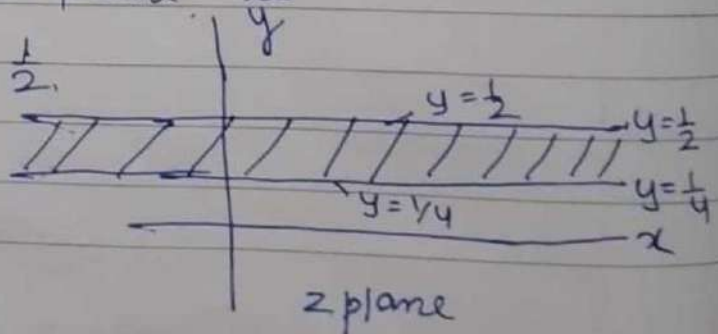 y
1/2.
y = 1/2
y = 1/2
y = 1/4
y = 1/4
x
z plane